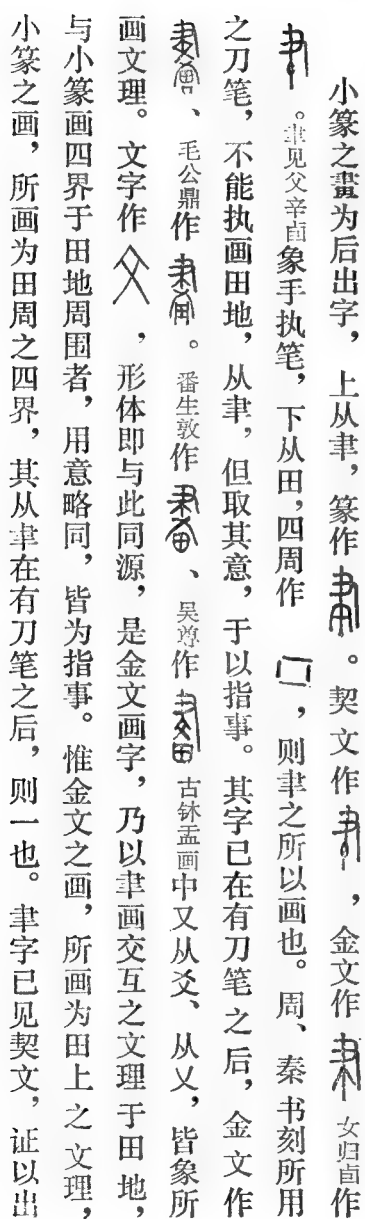 小篆之畫为后出字，上从聿，篆作。契文作，金文作女归卣作
。聿见父辛卣象手执笔，下从田，四周作囗，则聿之所以画也。周、秦书刻所用
之刀笔，不能执画田地，从聿，但取其意，于以指事。其字已在有刀笔之后，金文作
、毛公鼎作。番生敦作、吴尊作古鉥盂画中又从爻、从乂，皆象所
画文理。文字作，形体即与此同源，是金文画字，乃以聿画交互之文理于田地，
与小篆画四界于田地周围者，用意略同，皆为指事。惟金文之画，所画为田上之文理，
小篆之画，所画为田周之四界，其从聿在有刀笔之后，则一也。聿字已见契文，证以出